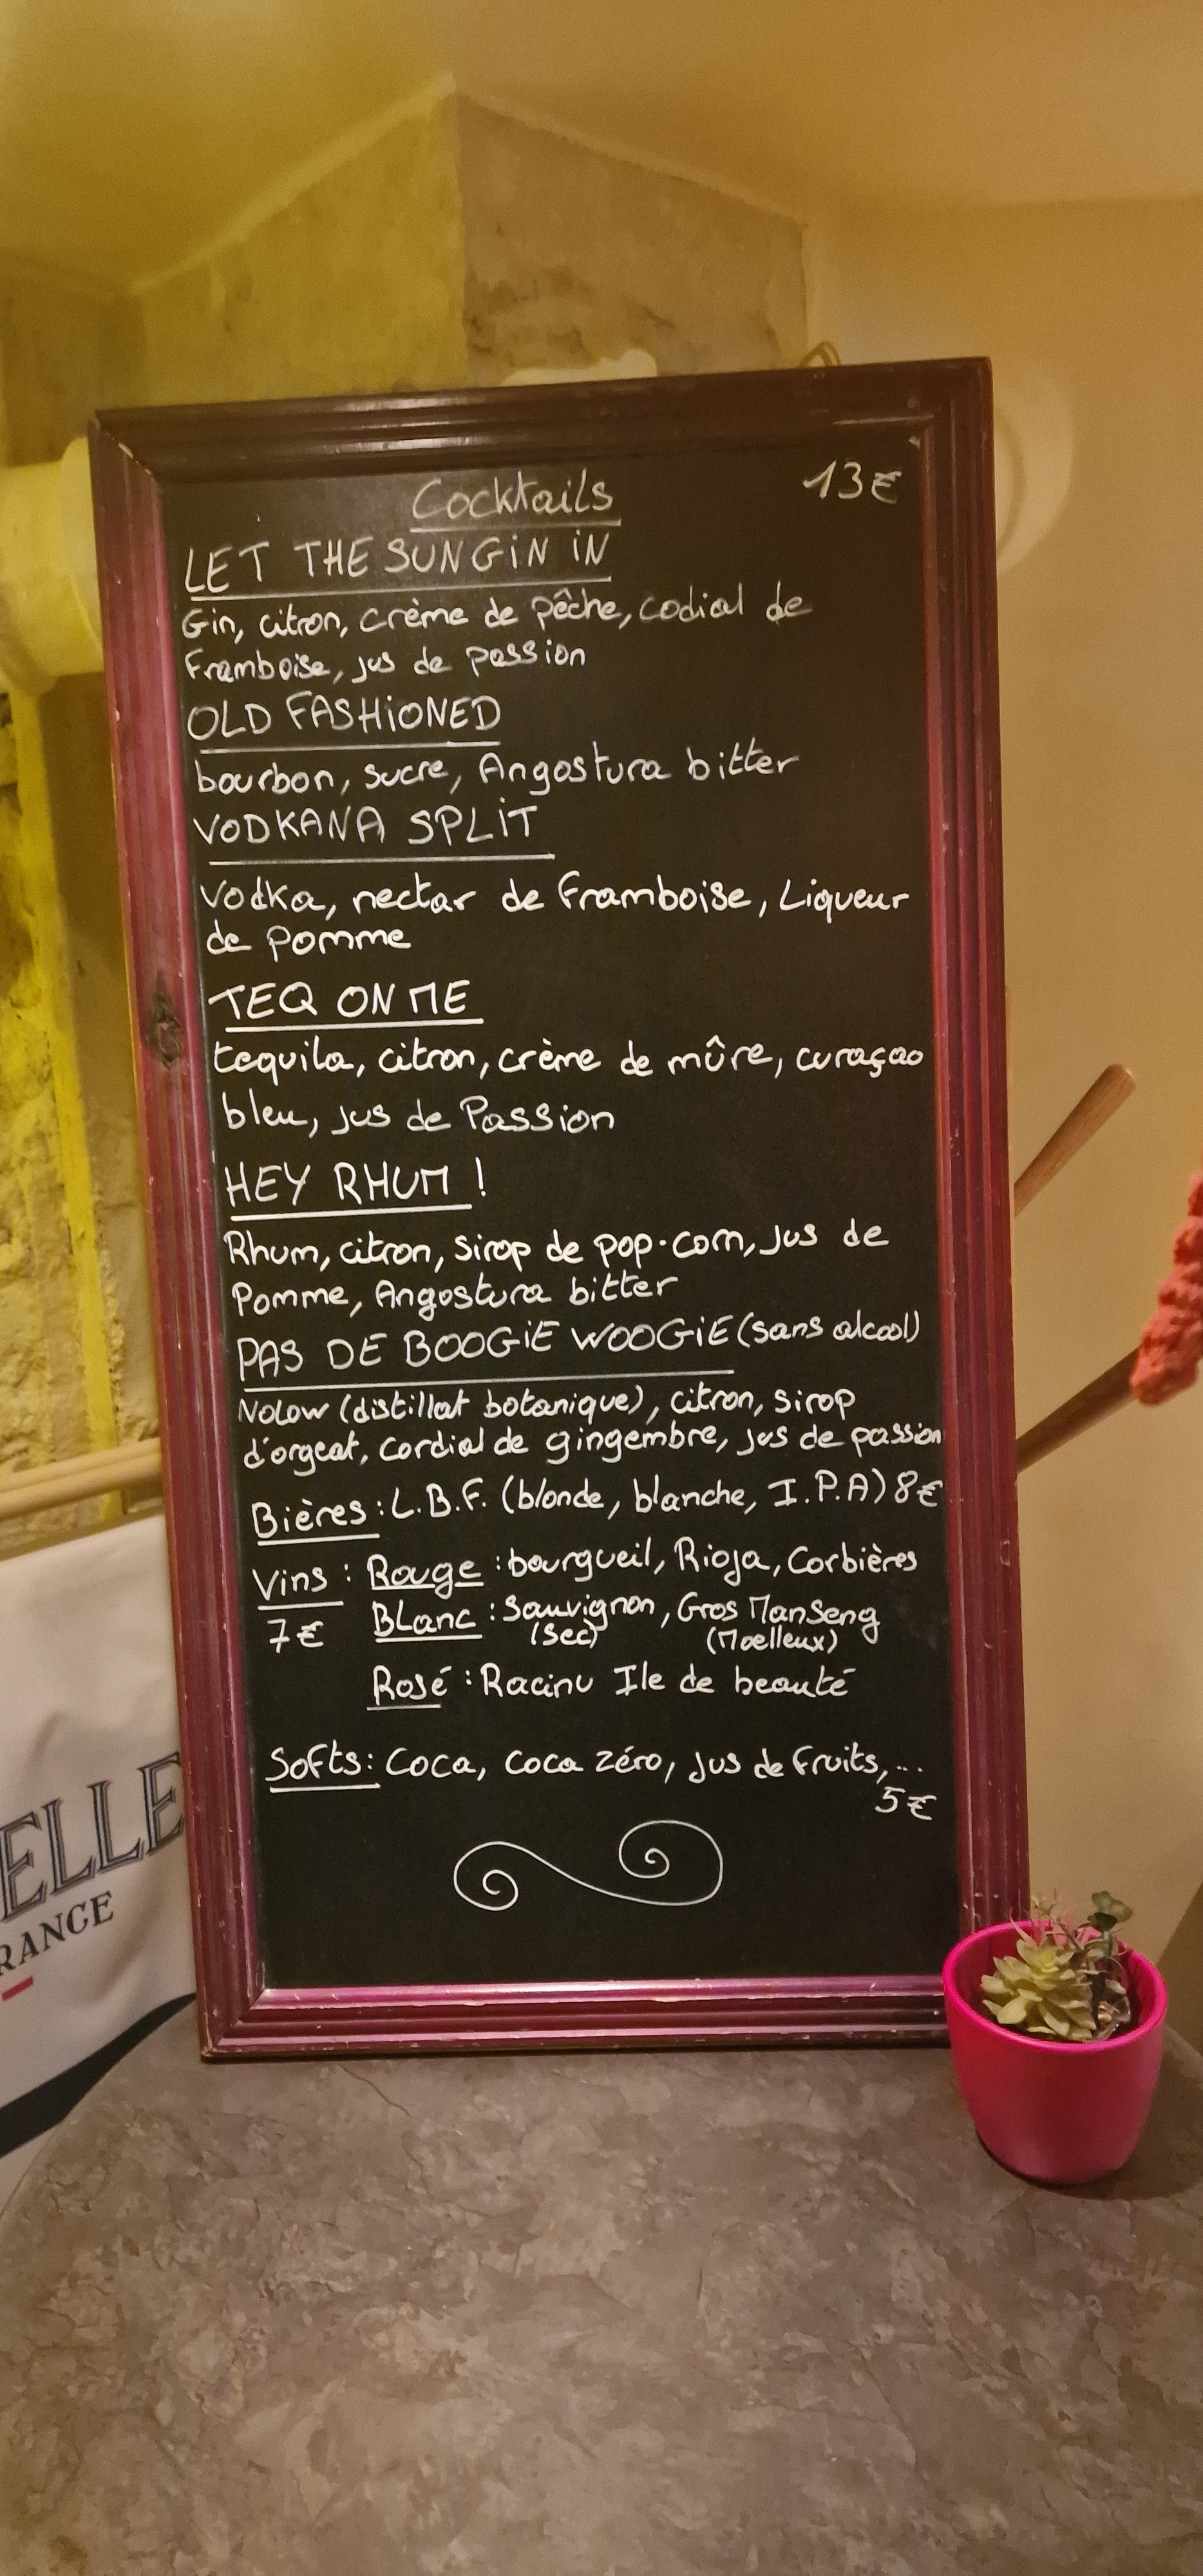 Cocktails 13€
LET THE SUN GIN IN
Gin, citron, crème de pêche, codial de
Framboise, jus de passion
OLD FASHIONED
bourbon, sucre, Angostura bitter
VODKANA SPLIT
Vodka, nectar de Framboise, Liqueur
de Pomme
TEQ ON ME
tequila, citron, crème de mûre, curaçao
bleu, jus de Passion
HEY RHUM !
Rhum, citron, sirop de pop-corn, jus de
Pomme, Angostura bitter
PAS DE BOOGIE WOOGIE (sans alcool)
Nolow (distillat botanique), citron, sirop
d'orgeat, cordial de gingembre, jus de passion
Bières : L.B.F. (blonde, blanche, I.P.A) 8€
Vins : Rouge : bourgueil, Rioja, Corbières
7€ Blanc : Sauvignon, Gros Manseng
(Sec) (Moelleux)
Rosé : Racinu Ile de beauté
Softs : Coca, coca zéro, jus de fruits,...
5€
ELLE
RANCE